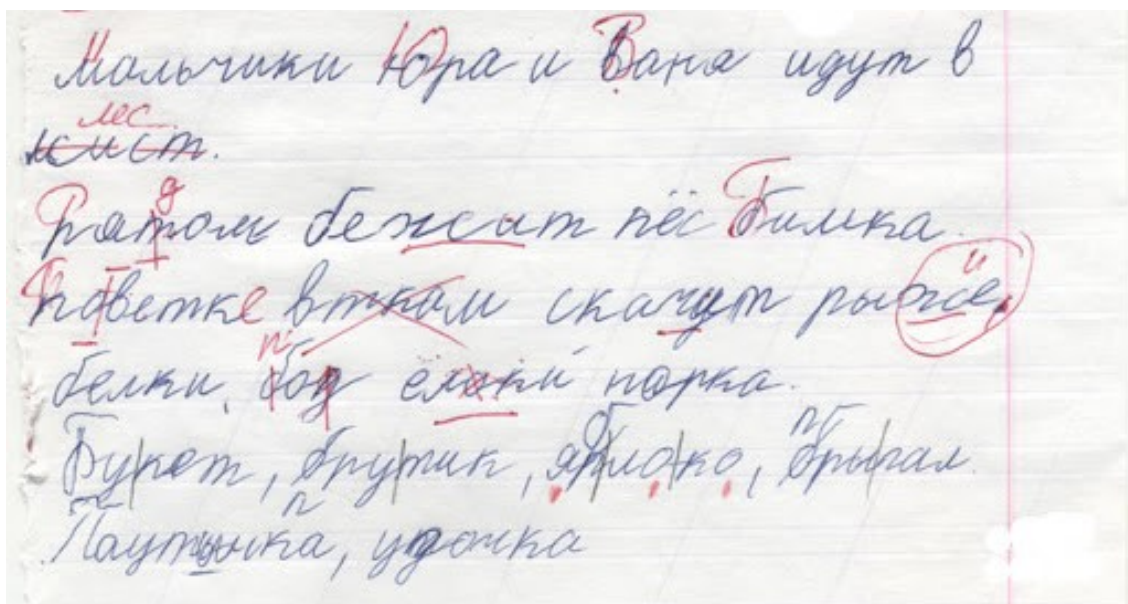 Мальчики Юра и Ваня идут в
лес
лист.
Рятом бежит пёс Бимка.
Поветке скачут рыжие
белки. под ёлкой норка.
Букет, брутик, яблоко, брыгал
Паутинка, удочка